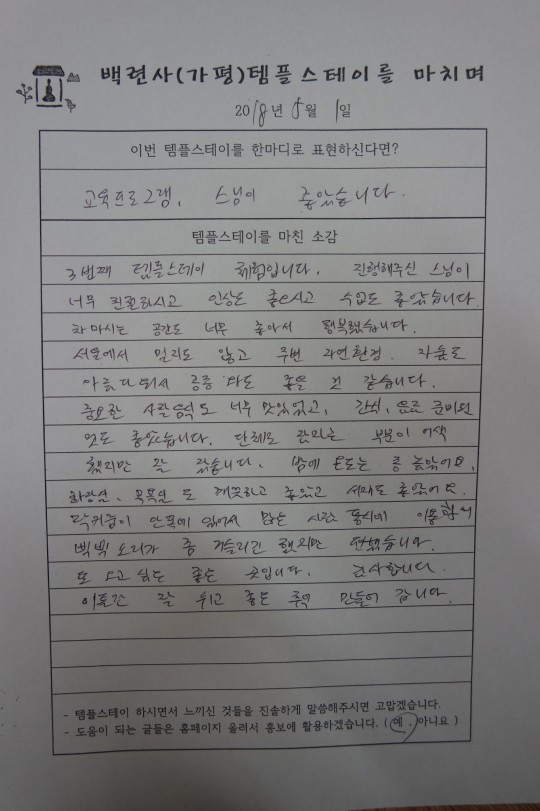 백련사(가평)템플스테이를 마치며
2018년 5월 1일
이번 템플스테이를 한마디로 표현하신다면?
교육프로그램, 스님이 좋았습니다.
템플스테이를 마친 소감
3번째 템플스테이 체험입니다. 진행해주신 스님이
너무 친절하시고 인상도 좋으시고 수업도 좋았습니다.
차 마시는 공간도 너무 좋아서 행복했습니다.
서울에서 멀지도 않고 주변 자연환경
아름다워서 좋을 것 같습니다.
사찰음식도 너무 맛있었고, 간식, 음료 준비된
것도 좋았습니다. 단체로 부분이 어색
했지만 잘 잤습니다. 밤에 온도는 좀 높았어요.
화장실, 목욕실도 깨끗하고 좋았고 세제도 좋았어요.
안쪽에 있어서 많은 사람 동시에 이용할 때
삑삑 소리가 좀 거슬리긴 했지만 편했습니다.
또 오고 싶은 좋은 곳입니다. 감사합니다.
이틀간 잘 쉬고 좋은 추억 만들어 갑니다.
- 템플스테이 하시면서 느끼신 것들을 진솔하게 말씀해주시면 고맙겠습니다.
- 도움이 되는 글들은 홈페이지 올려서 홍보에 활용하겠습니다. ( 예 , 아니요 )